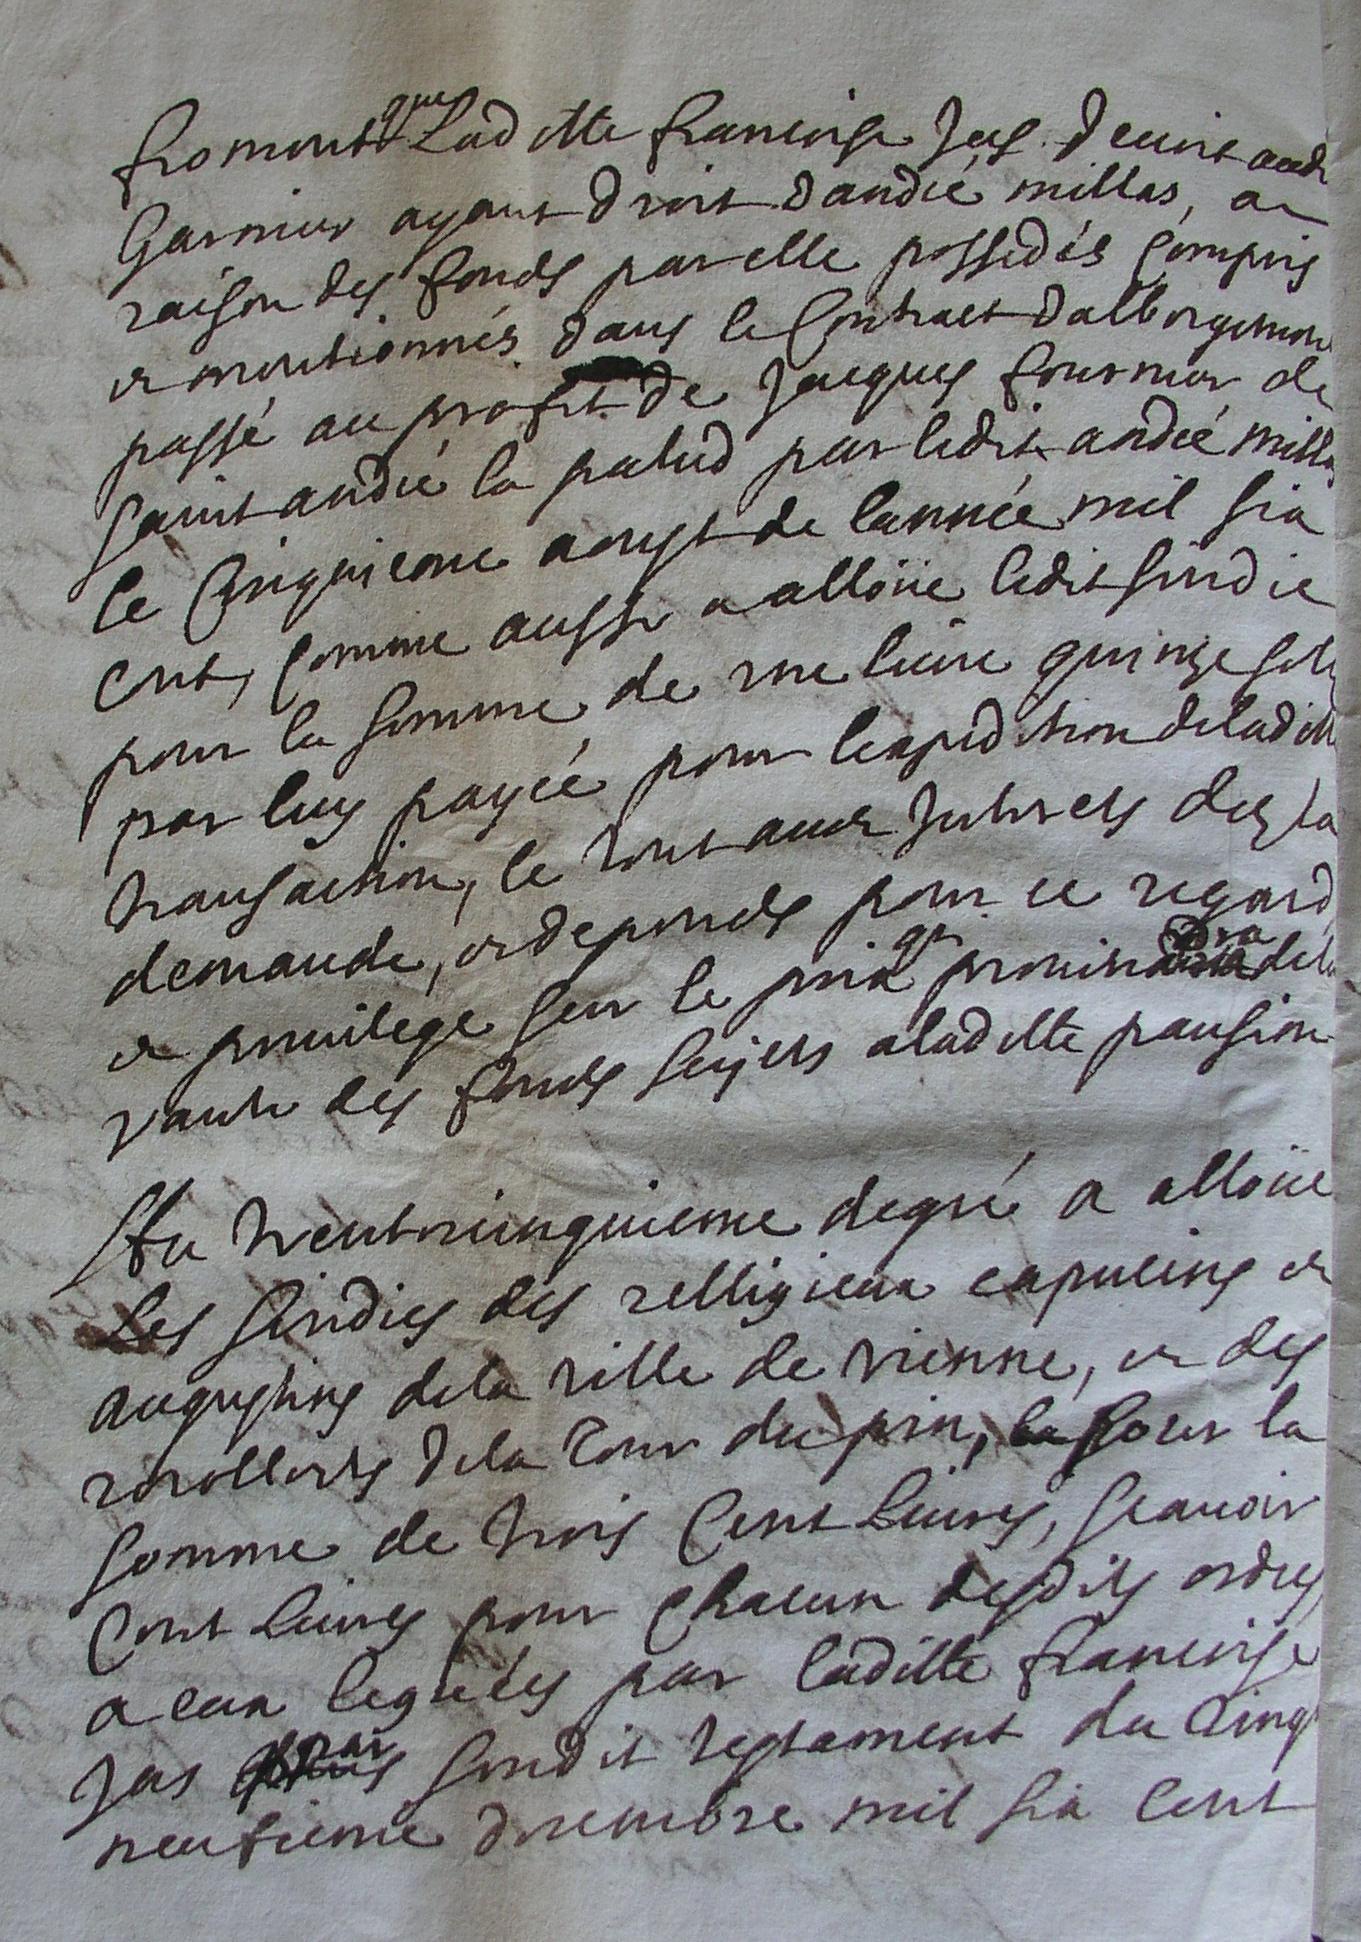 froment que Laditte francoise Jas devoit audt
Garnier ayant droit dandré millas, a
raison des fonds par elle possedés compris
et mentionnés dans le Contract dalbergement
passé au profit de Jacques fournier de
saint andré la palud par ledit andré millas
le cinquieme aoust de lannée mil six
cent, comme aussy a alloüé ledit sindic
pour la somme de une livre quinze sols
par luy payée pour lexpedition de laditte
transaction, le tout avec Interets dez la
demande, et depends pour ce regard
et privilege sur le prix qui proviendra de la
vante des fonds sujets a laditte pansion
Au trentecinquieme degré a alloüé
Les sindics des relligieux capucins et
augustins de la ville de vienne, et des
recollects de la Tour du pin, pour la
somme de trois Cent Livres, scavoir
Cent Livres pour chacun desdits ordres
a eux leguées par laditte francoise
Jas par sondit testament du vingt
neufieme decembre mil six cent